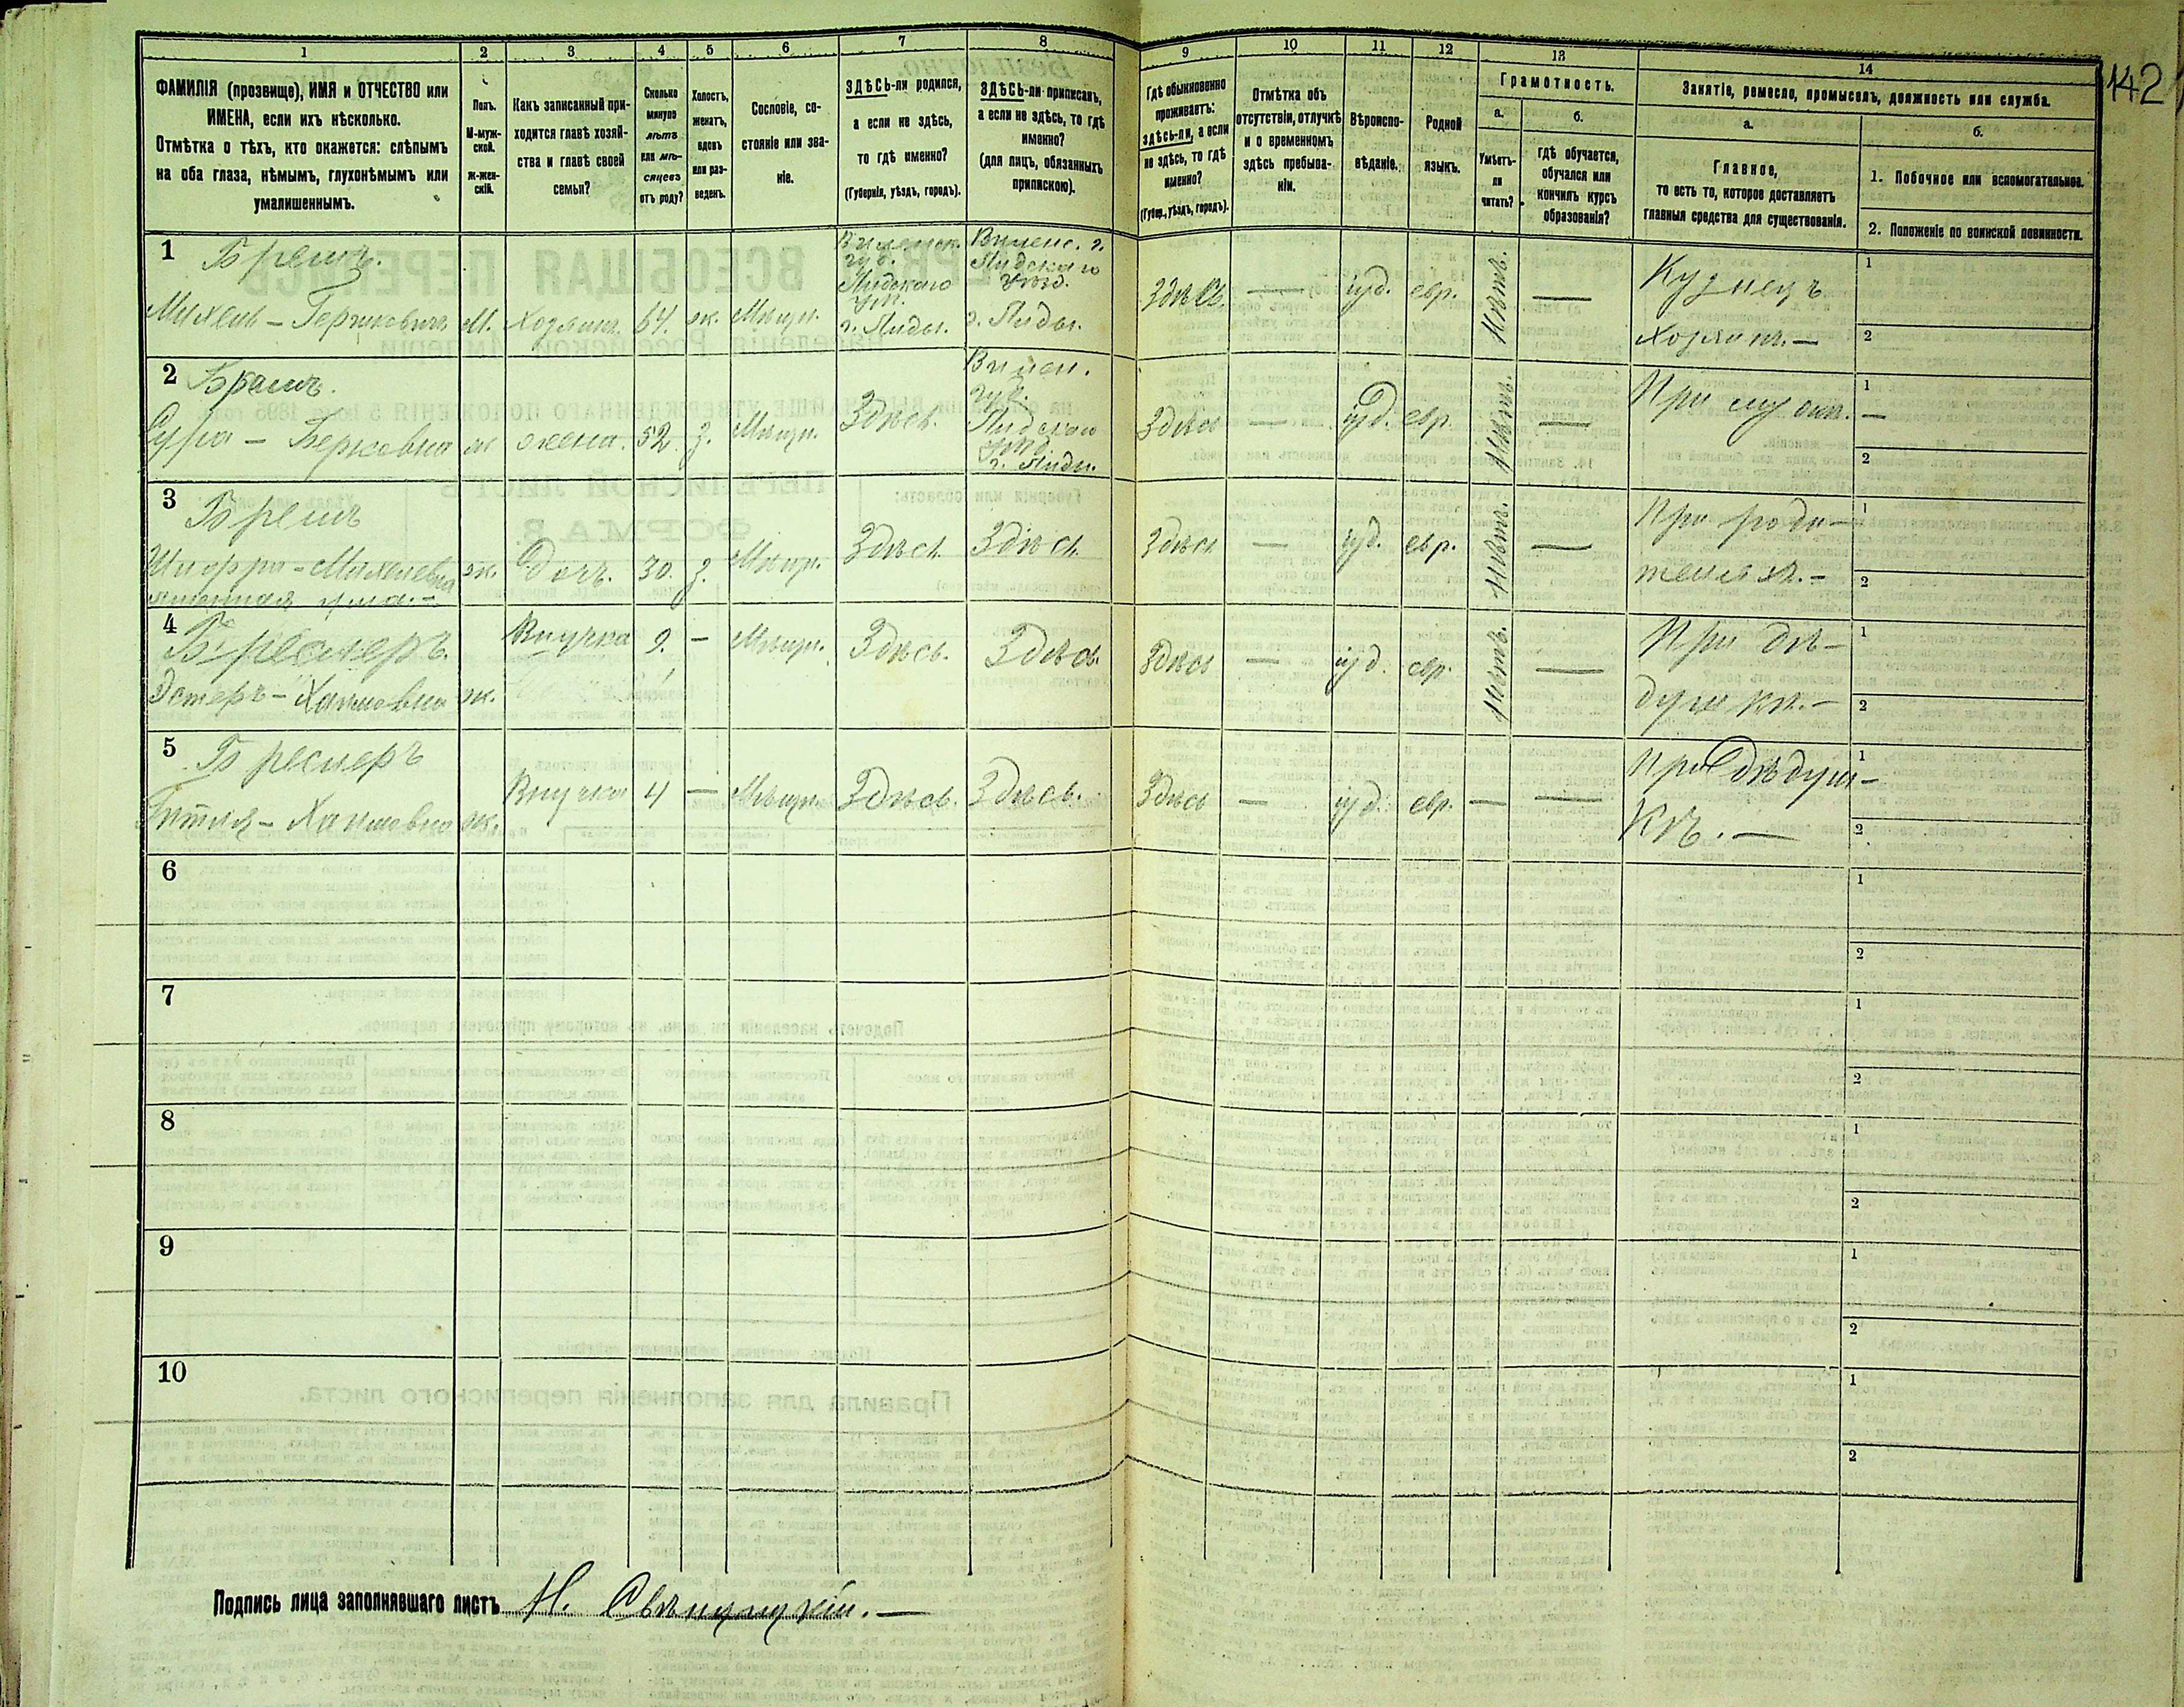 142
1
2
3
4
5
6
7
8
9
10
11
12
13
14
ФАМИЛІЯ (прозвище), ИМЯ и ОТЧЕСТВО или
ИМЕНА, если ихъ нѣсколько.
Отмѣтка о тѣхъ, кто окажется: слѣпымъ
на оба глаза, нѣмымъ, глухонѣмымъ или
умалишеннымъ.
Полъ.
М-муж-
ской.
Ж-жен-
скій.
Какъ записанный при-
ходится главѣ хозяй-
ства и главѣ своей
семьи?
Сколько
минуло
лѣтъ
или мѣ-
сяцевъ
отъ роду?
Холостъ,
женатъ,
вдовъ
или раз-
веденъ.
Сословіе, со-
стояніе или зва-
ніе.
ЗДѢСЬ-ли родился,
а если не здѣсь,
то гдѣ именно?
(Губернія, уѣздъ, городъ).
ЗДѢСЬ-ли приписанъ,
а если не здѣсь, то гдѣ
именно?
(для лицъ, обязанныхъ
припискою).
Гдѣ обыкновенно
проживаетъ:
здѣсь-ли, а если
не здѣсь, то гдѣ
именно?
(Губер., уѣздъ, городъ).
Отмѣтка объ
отсутствіи, отлучкѣ
и о временномъ
здѣсь пребыва-
ніи.
Вѣроиспо-
вѣданіе.
Родной
языкъ.
Грамотность.
а.
Умѣетъ-
ли
читать?
б.
гдѣ обучается,
обучался или
кончилъ курсъ
образованія?
Занятіе, ремесло, промыселъ, должность или служба.
а.
Главное,
то есть то, которое доставляетъ
главныя средства для существованія.
б.
1. Побочное или вспомогательное.
2. Положеніе по воинской повинности.
1
Брешъ.
Михель – Гершковичъ
М.
Хозяинъ.
64.
ж.
Мѣщ.
Виленск.
губ.
Лидскаго
уѣз.
г. Лиды.
Виленс. г.
Лидскаго
уѣзд.
г. Лиды.
Здѣсь.
—
іуд.
евр.
Нѣтъ.
—
Кузнецъ
Хозяинъ. —
1
2
2
Брешъ.
Сура – Берковна
ж
жена.
52.
з.
Мѣщ.
Здѣсь.
Вилен.
губ.
Лидскаго
уѣзд.
г. Лиды.
Здѣсь
—
іуд.
евр.
Нѣтъ.
—
При мужѣ. —
1
2
3
Брешъ
Шифра – Михелевна
лишенная ума. –
ж.
Дочь.
30.
з.
Мѣщ.
Здѣсь.
Здѣсь.
Здѣсь
—
іуд.
евр.
Нѣтъ.
—
При роди-
теляхъ. –
1
2
4
Бреслеръ.
Эстеръ – Хаимовна
ж.
Внучка
9.
–
Мѣщ.
Здѣсь.
Здѣсь.
Здѣсь
—
іуд.
евр.
Нѣтъ.
—
При дѣ-
душкѣ. –
1
2
5
Бреслеръ
Гитля – Хаимовна
ж.
Внучка
4
—
Мѣщ.
Здѣсь.
Здѣсь.
Здѣсь
—
іуд.
евр.
—
—
При дѣдуш-
кѣ. —
1
2
6
1
2
7
1
2
8
1
2
9
1
2
10
1
2
Подпись лица заполнявшаго листъ Н. Свѣнцицкій. —